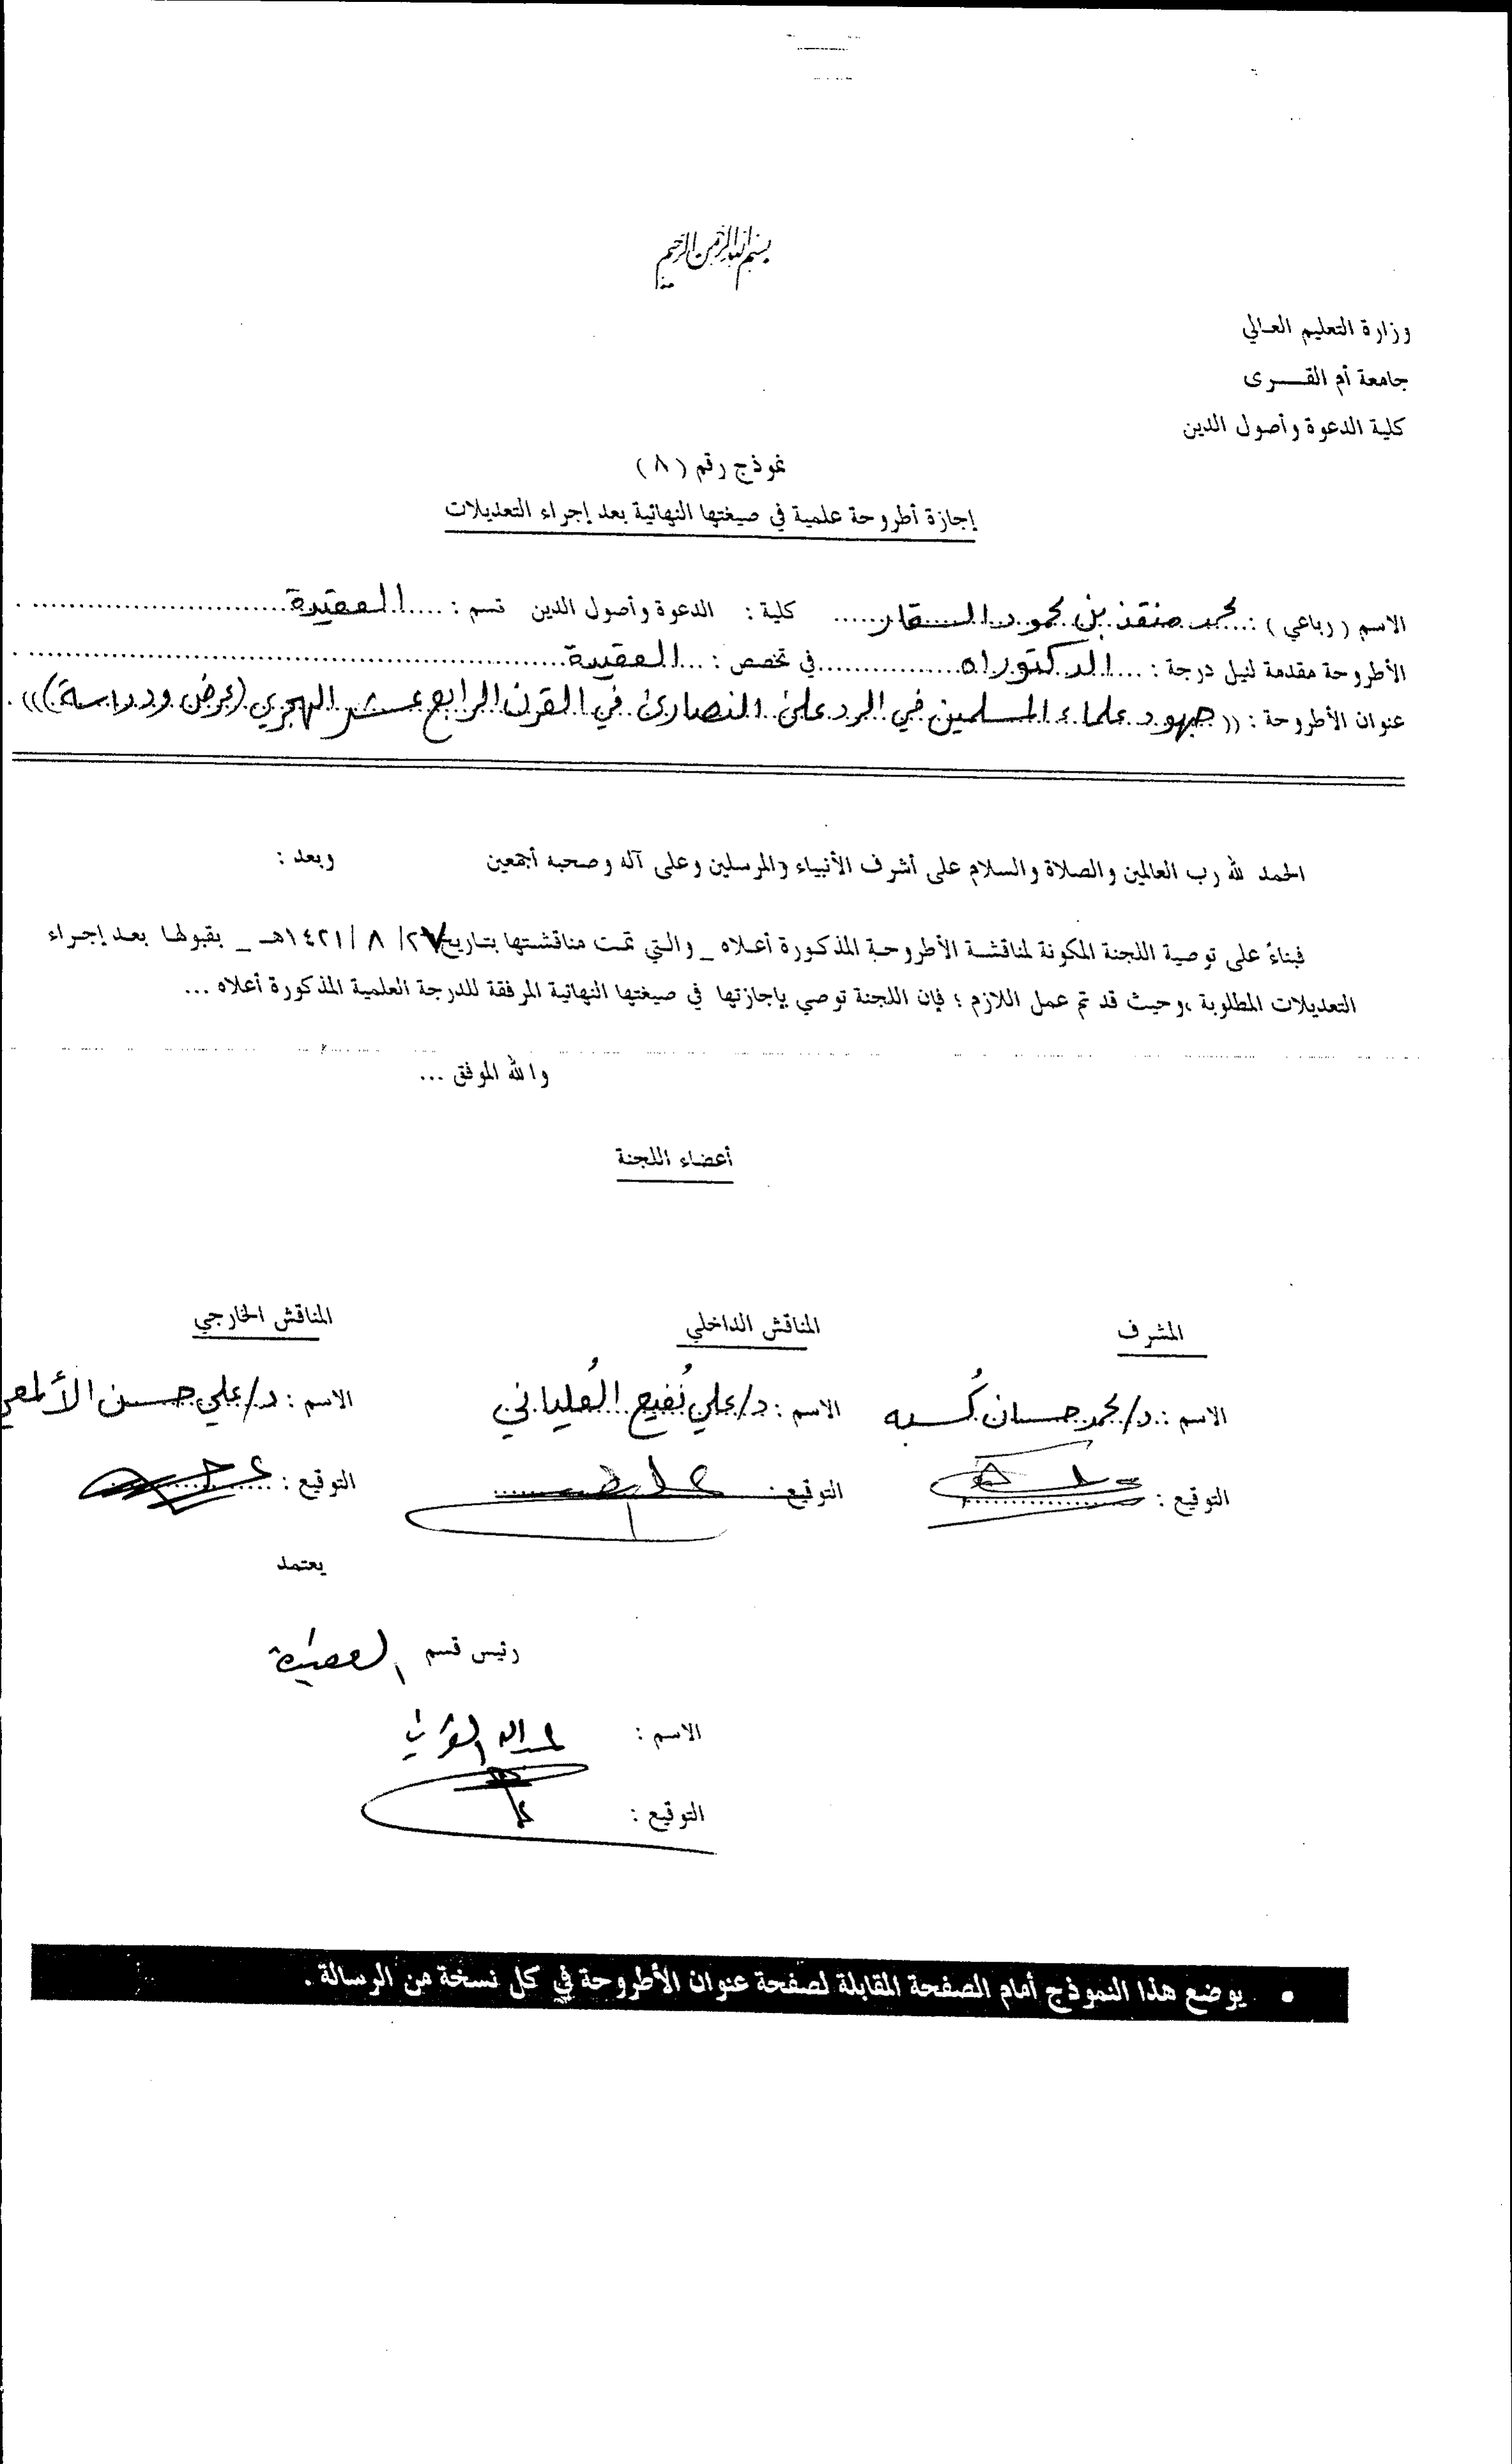 بسم الله الرحمن الرحيم
وزارة التعليم العالي
جامعة أم القــــرى
كلية الدعوة وأصول الدين
نموذج رقم ( ٨ )
إجازة أطروحة علمية في صيغتها النهائية بعد إجراء التعديلات
الاسم ( رباعي ) : محمد منقذ بن محمود السقار كلية : الدعوة وأصول الدين قسم : العقيدة
الأطروحة مقدمة لنيل درجة : الدكتوراه في تخصص : العقيدة
عنوان الأطروحة : (( جهود علماء المسلمين في الرد على النصارى في القرن الرابع عشر الهجري (عرض ودراسة) )) .
الحمد لله رب العالمين والصلاة والسلام على أشرف الأنبياء والمرسلين وعلى آله وصحبه أجمعين وبعد :
فبناءً على توصية اللجنة المكونة لمناقشة الأطروحة المذكورة أعلاه _ والتي تمت مناقشتها بتاريخ ٢٧/ ٨ /١٤٢١هـ _ بقبولها بعد إجراء
التعديلات المطلوبة ،وحيث قد تم عمل اللازم ؛ فإن اللجنة توصي بإجازتها في صيغتها النهائية المرفقة للدرجة العلمية المذكورة أعلاه ...
والله الموفق ...
أعضاء اللجنة
المشرف المناقش الداخلي المناقش الخارجي
الاسم : د/محمد حسان كُسبه الاسم : د/علي نُفيع العُلياني الاسم : د/علي حسن الألمعي
التوقيع : التوقيع : التوقيع :
يعتمد
رئيس قسم العقيدة
الاسم : عبدالله
التوقيع :
• يوضع هذا النموذج أمام الصفحة المقابلة لصفحة عنوان الأطروحة في كل نسخة من الرسالة .